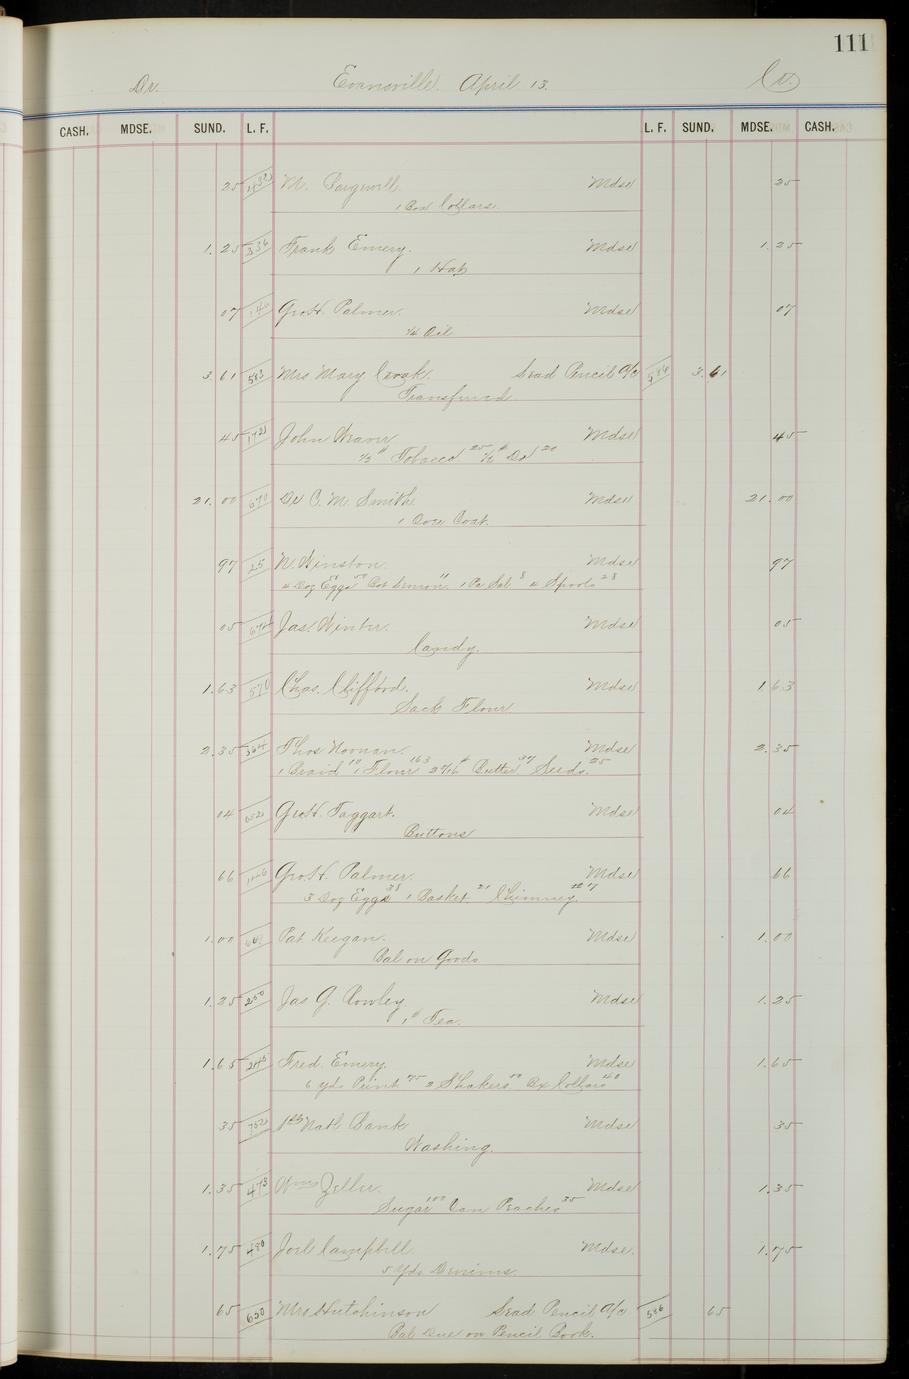 111
Dr. Evansville. April 13. Cr.
CASH. MDSE. SUND. L. F. L. F. SUND. MDSE. CASH.
25 M. Mdse 25
1 Box Collars.
1.25 336 Frank Emery. Mdse 1.25
1 Hat
07 140 Geo. H. Palmer. Mdse 07
¼ Oil
3.61 583 Mrs Mary Lead Pencil a/c 586 3.61
Transfered
45 John Weaver Mdse 45
½# Tobacco 25 ½# Do 20
21.00 670 Dr C. M. Smith. Mdse 21.00
1 Coat.
97 25 N. Winston. Mdse 97
4 Doz Eggs 50 1 Pa Salt 8 4 Spools 28
05 Jas. Winter. Mdse 05
Candy.
1.63 570 Chas. Clifford. Mdse 1.63
Sack Flour
2.35 364 Thos Noonan. Mdse 2.35
1 Braid 10 1 Flour 163 Butter 37 Seeds. 25
04 652 Geo H. Taggart. Mdse 04
Buttons
66 Geo. H. Palmer. Mdse 66
3 Doz Eggs 38 1 Basket. 21 Chimney. 7
1.00 Pat Keegan. Mdse 1.00
Bal on Goods
1.25 250 Jas G. Rowley. Mdse 1.25
1# Tea.
1.65 245 Fred. Emery. Mdse 1.65
6 yds Print 75 2 Shakers 50 Bx Collars 40
35 702 1st Natl Bank Mdse 35
Washing.
1.35 473 Wm Zeller. Mdse 1.35
Sugar 100 Can Peaches 35
1.75 480 Joel Campbell. Mdse. 1.75
5 Yds Denims.
65 650 Mrs Hutchinson Lead Pencil a/c 586 65
Bal Due on Pencil Book.